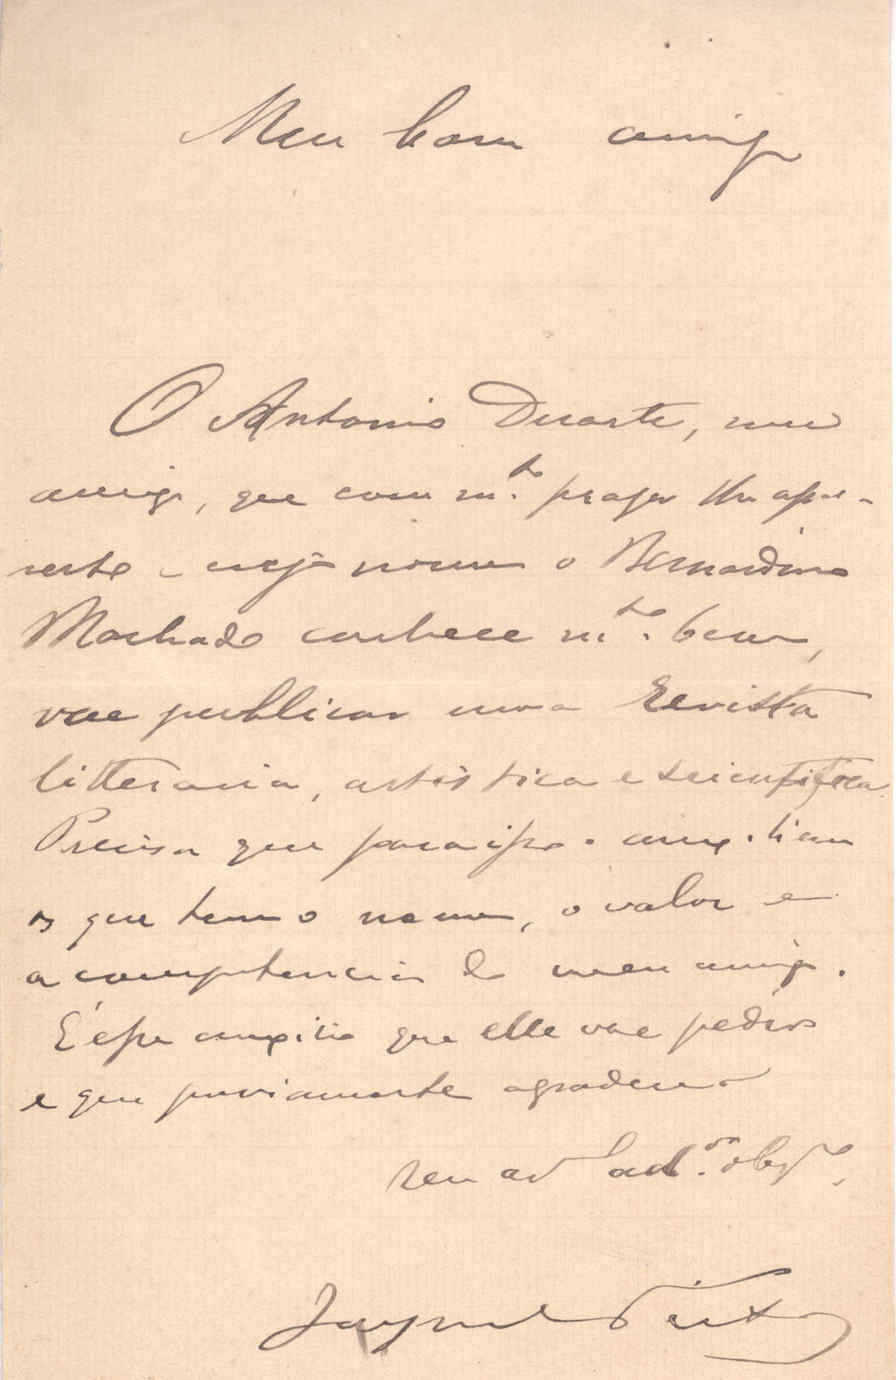 Meu bom amigo
O Antonio Duarte, meu
amigo, que com m.to prazer lhe apre-
sento e cujo nome o Bernardino
Machado conhece m.to bem,
vae publicar uma Revista
litteraria, artistica e scientifica.
Precisa que para isso o auxiliem
os que tem o nome, o valor e
a competencia do meu amigo.
É esse auxilio que elle vae pedir
e que previamente agradece o
seu ad.or obg.do
Jayme